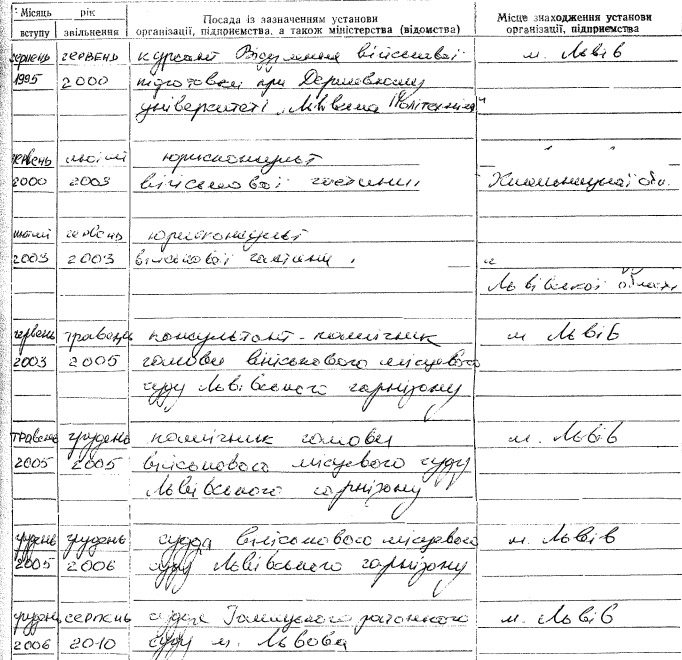 Місяць рік Посада із зазначенням установи Місце знаходження установи
вступу звільнення організації, підприємства, а також міністерства (відомства) організації, підприємства
серпень червень курсант Відділення військової м. Львів
1995 2000 підготовки при Державному
університеті „Львівська Політехніка"
червень лютий юрисконсульт " "
2000 2003 військової частини, Хмельницької обл.
лютий червень юрисконсульт
2003 2003 військової частини, "
Львівської області
червень травень консультант-помічник м Львів
2003 2005 голови військового місцевого
суду Львівського гарнізону
травень грудень помічник голови м. Львів
2005 2005 військового місцевого суду
Львівського гарнізону
грудень грудень суддя військового місцевого м. Львів
2005 2006 суду Львівського гарнізону
грудень серпень суддя Галицького районного м. Львів
2006 2010 суду м. Львова